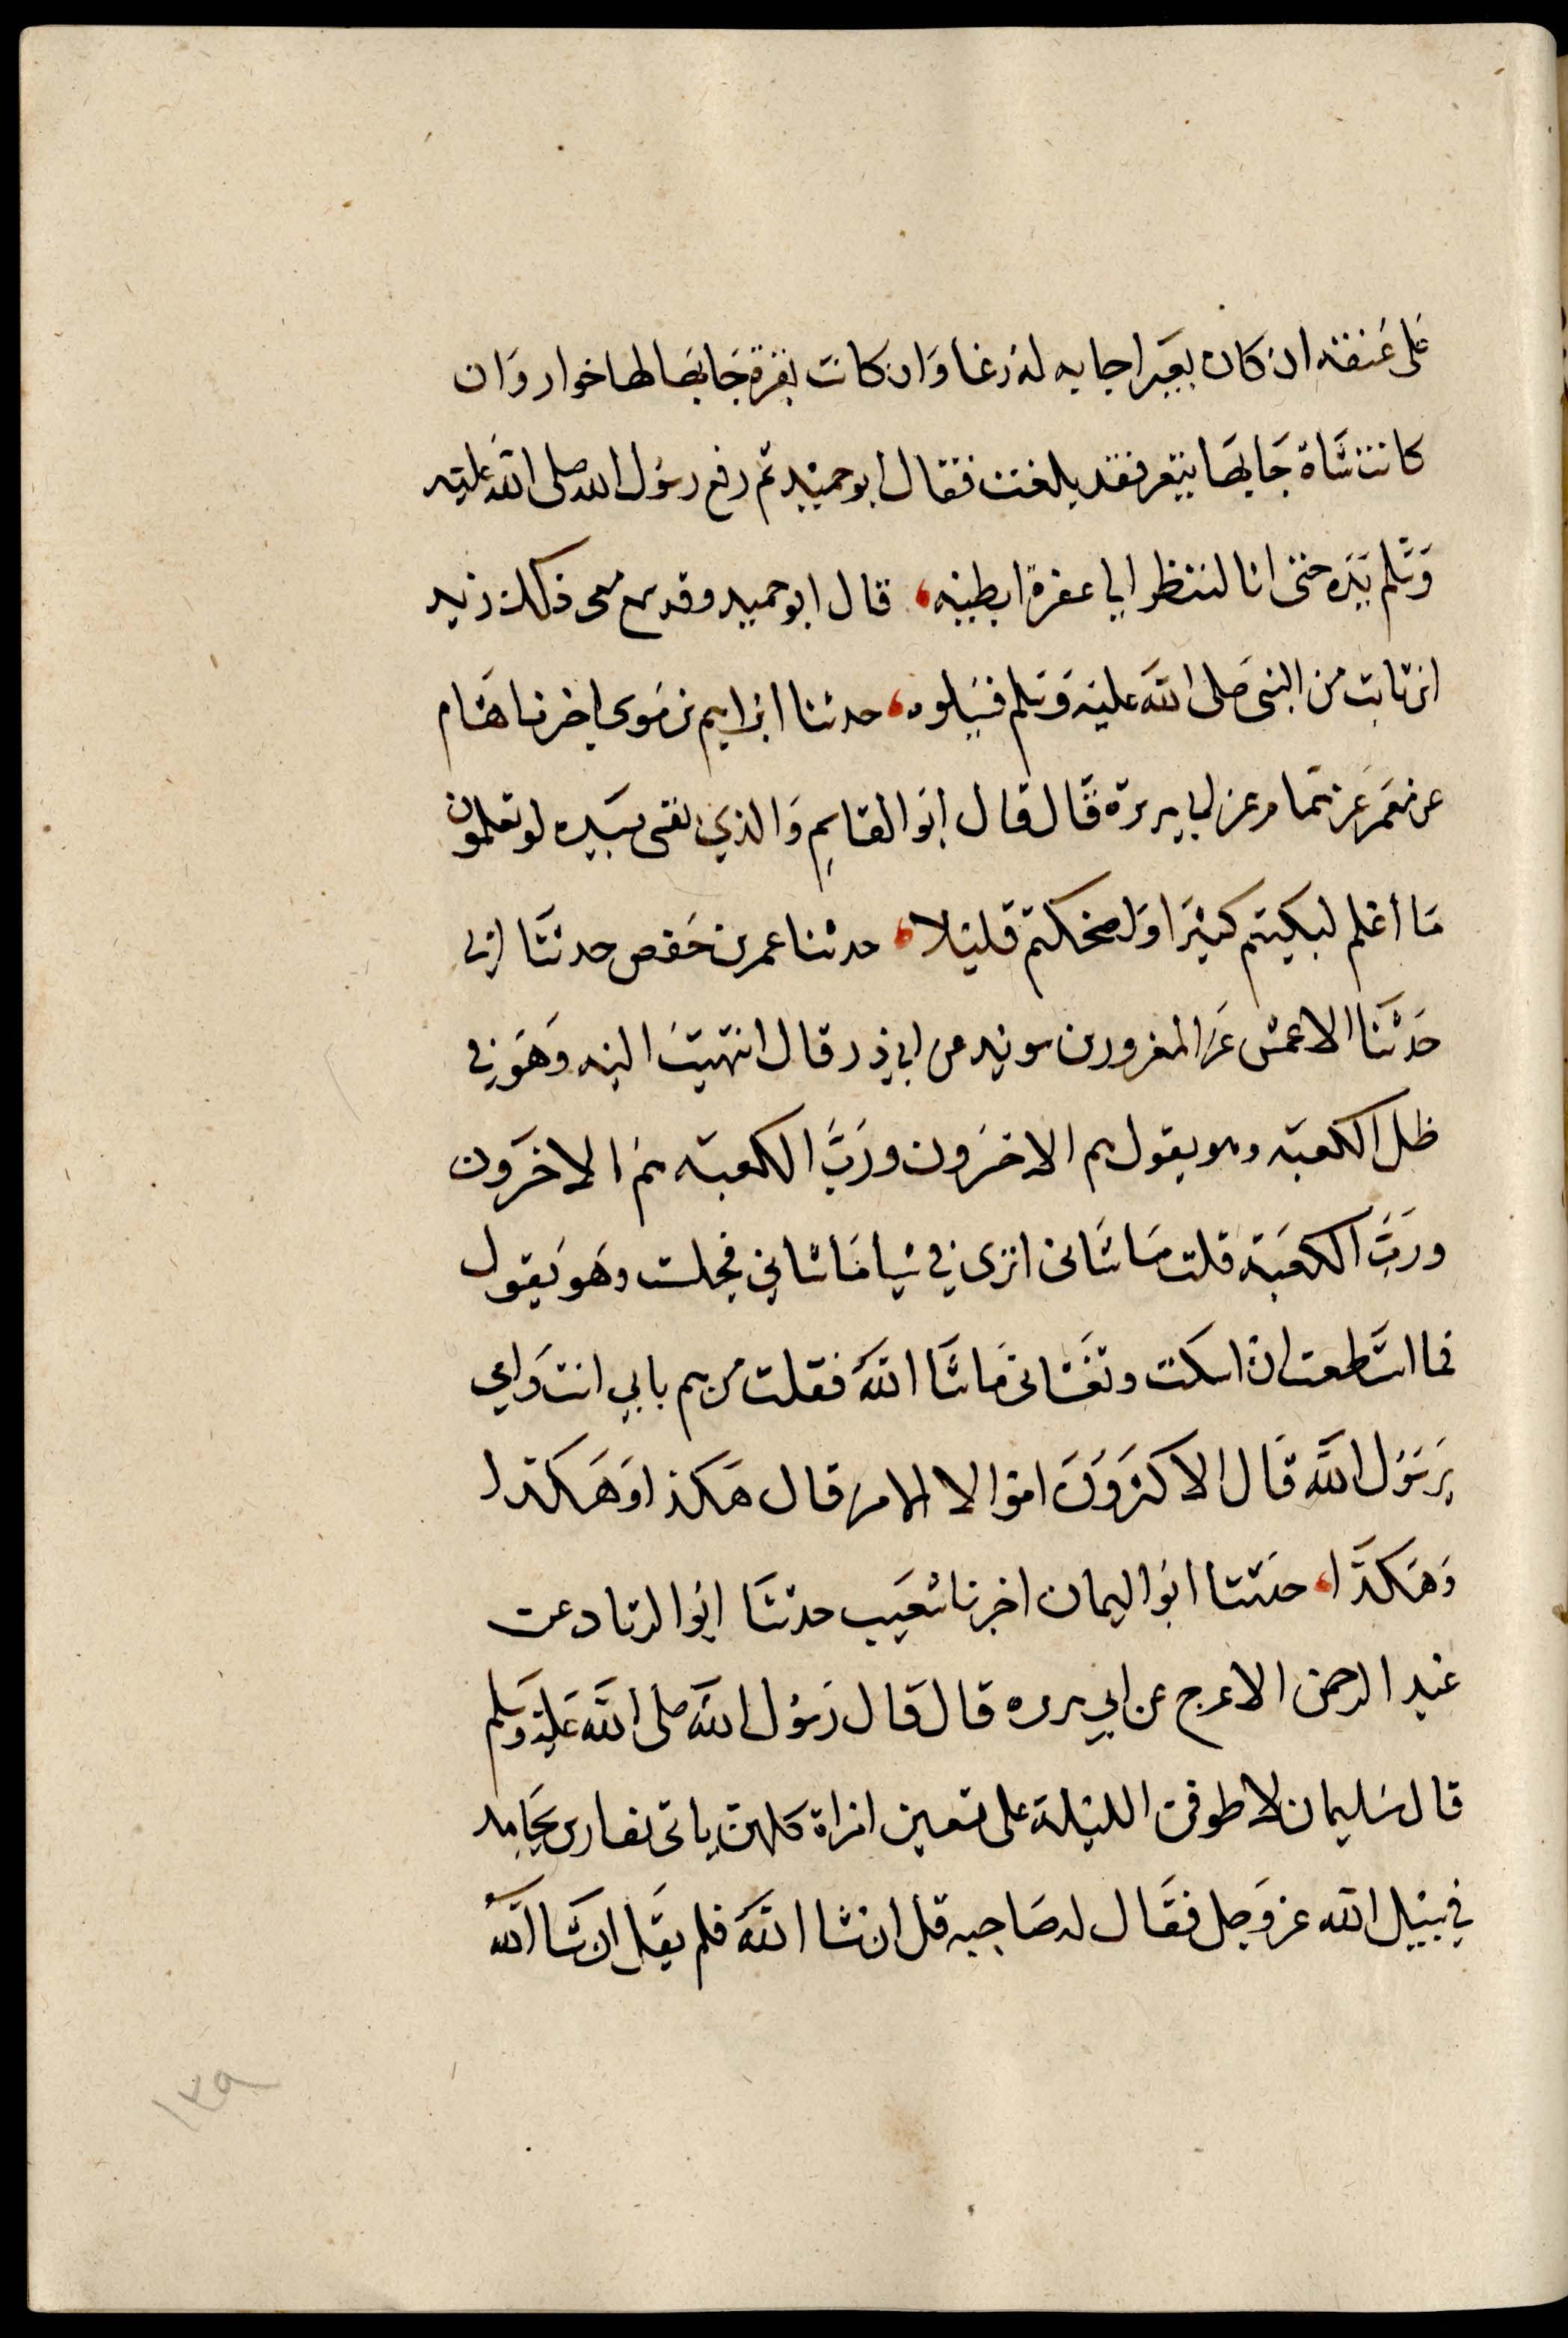 على عنقه ان كان بعيرا جا به له رغا وان كانت بقرة جا بها لها خوار وان
كانت شاة جا بها تيعر فقد بلغت فقال ابو حميد ثم رفع رسول الله صلى الله عليه
وسلم يده حتى انا لننظر الى عفرة ابطيه، قال ابو حميد وقد سمع معى ذلك زيد
ابن ثابت من النبى صلى الله عليه وسلم فسلوه، حدثنا ابراهيم بن موسى اخبرنا هشام
عن معمر عن همام عن ابى هريرة قال قال ابو القاسم والذي نفسى بيده لو تعلمون
ما اعلم لبكيتم كثيرا ولضحكتم قليلا، حدثنا عمر بن حفص حدثنا ابى
حدثنا الاعمش عن المعرور بن سويد عن ابي ذر قال انتهيت اليه وهو في
ظل الكعبة وهو يقول هم الاخسرون ورب الكعبة هم الاخسرون
ورب الكعبة قلت ما شانى اترى في شيا ما شاني فجلست وهو يقول
فما استطعت ان اسكت وتغشانى ما شا الله فقلت من هم بابي انت وامي
يرسول الله قال الاكثرون اموالا الا من قال هكذا وهكذا
وهكذا، حدثنا ابو اليمان اخبرنا شعيب حدثنا ابو الزناد عن
عبد الرحمن الاعرج عن ابي هريره قال قال رسول الله صلى الله عليه وسلم
قال سليمان لاطوفن الليلة على تسعين امراة كلهن ياتى بفارس يجاهد
في سبيل الله عز وجل فقال له صاحبه قل ان شا الله فلم يقل ان شا الله
١٣٩